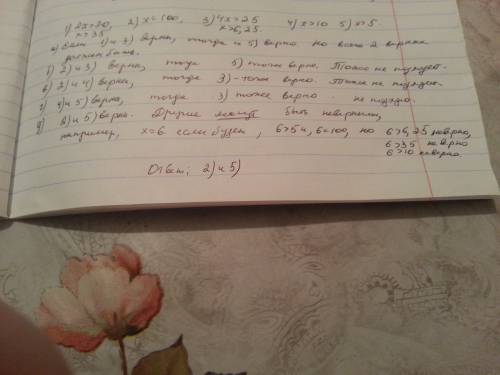 1) 2x>70, 2) x<100, 3) 4x>25 4) x>10 5) x>5.
x>35 x>6,25.
а) Если 1) и 3) верны, тогда и 5) верно но всего 2 верных
должен быть.
б) 2) и 3) верны, тогда 5) тоже верно. Тоже не подходит.
в) 2) и 4) верны, тогда 3) - тоже верно. Тоже не подходит.
г) 4) и 5) верны, тогда 3) тоже верно. не подходит.
д) 2) и 5) верны. Другие могут быть неверными,
например, x=6 если будет, 6>5 и, 6<100, но 6>6,25 неверно,
6>35 неверно
6>10 неверно.
Ответ: 2) и 5)